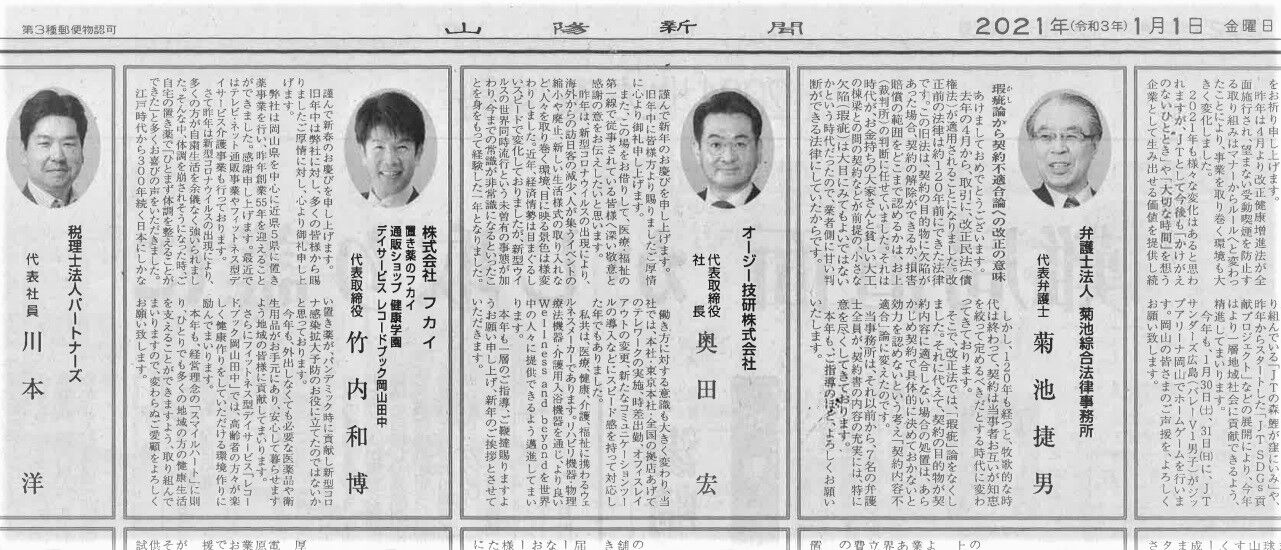 第3種郵便物認可
山陽新聞
2021年(令和3年)1月1日 金曜日
瑕疵論から契約不適合論への改正の意味
かし
あけましておめでとうございます。
去年の4月から、取引に改正民法(債
権法)が適用されることになりました。改
正前の法律は約120年前にできた法律
です。この旧法は、契約の目的物に欠陥が
あった場合、契約の解除ができるか、損害
賠償の範囲をどこまで認めるかは、お上
(裁判所)の判断に任せていました。それは
時代が、お金持ちの大家さんと貧しい大工
の棟梁との間の契約などが前提で、小さな
欠陥「瑕疵」は大目にみてもよいではない
かという時代だったので、業者側に甘い判
断ができる法律にしていたからです。
しかし、120年も経つと、牧歌的な時
代は終わって、契約は当事者お互いが知恵
を絞って定めるべきだとする時代に変わ
ってきております。
そこで、改正法では、「瑕疵」論をなくし
ました。それに代えて、契約の目的物が契
約内容に適合しない場合の処置は、あら
かじめ契約で具体的に決めておかないと
効力を認めないという考え(契約内容不
適合)論に変えたのです。
当事務所は、それ以前から、7名の弁護
士全員が、契約書の内容の充実には、特に
意を尽くしてきております。
本年も、ご指導のほど、よろしくお願い
弁護士法人 菊池綜合法律事務所
代表弁護士 菊池捷男
謹んで新年のお慶びを申し上げます。
旧年中に皆様方より賜りましたご厚情
に心より御礼申し上げます。
また、この場をお借りして、医療、福祉の
第一線で従事されている皆様へ深い敬意と
感謝の意をお伝えしたいと思います。
昨年は、新型コロナウイルスの出現により、
海外からの訪日客の減少、人が集うイベントの
縮小や廃止、新しい生活様式の取り入れな
ど、人を取り巻く環境、目に映る景色は様変
わりしました。近年、経済情勢は目まぐるし
いスピードで変化しておりましたが、新型ウイ
ルスの世界同時流行という未曾有の事態が加
わり、今までの常識が非常識になるといったこ
とを身をもって経験した一年となりました。
働き方に対する意識も大きく変わり、当
社では、本社・東京本社・全国の拠点あげて
のテレワークの実施、時差出勤、オフィスレイ
アウトの変更、新たなコミュニケーションツー
ルの導入などにスピード感を持って対応し
た年でもありました。
私共は、医療、健康、介護、福祉に携わるウェ
ルネスメーカーであります。リハビリ機器・物理
療法機器・介護用入浴機器を通じ、より良い
Wellness and beyondを世界
中の人々に提供できるよう邁進してまい
ります。
本年も一層のご指導、ご鞭撻賜りますよ
うお願い申し上げ、新年のご挨拶とさせて
いただきます。
オージー技研株式会社
代表取締役
社長 奥田宏
謹んで新年のお慶びを申し上げます。
旧年中は弊社に対し、多くの皆様から賜
りましたご厚情に対し、心より御礼申し上
げます。
弊社は岡山県を中心に近県5県で置き
薬事業を行い、昨年創業55年を迎えること
ができました。感謝申し上げます。最近で
はカタログ・ネット通販事業やフィットネス型デ
イサービス介護事業も行っております。
さて昨年は新型コロナウイルスの出現により、
多くの方が自粛生活を余儀なく強いられまし
た。そんな中、体調を崩されそうになった時、ご
自宅の置き薬でひとまず体調を整えることが
できた!と多くのお喜びの声をいただきました。
江戸時代から300年続く日本にしかな
い置き薬が、パンデミック時に貢献し、新型コロ
ナ感染拡大予防のお役に立てたのではないか
と思っております。
今年も、外出しなくても必要な医薬品や衛
生用品がお手元にあり、安心して暮らせます
よう地域の皆様に貢献してまいります。
さらにフィットネス型デイサービス「レコー
ドブック岡山田中」では、高齢者の方々が楽
しく健康作りをしていただける環境作りに
励んでまいります。
本年も、経営理念の「スマイルハート」に則
り、ひとりでも多くの地域の方の健康生活
を支えることができますよう、取り組んで
まいりますので、変わらぬご愛顧よろしくご
お願い致します。
株式会社 フカイ
置き薬のフカイ
通販ショップ 健康学園
デイサービス レコードブック岡山田中
代表取締役 竹内和博
税理士法人パートナーズ
代表社員 川本洋